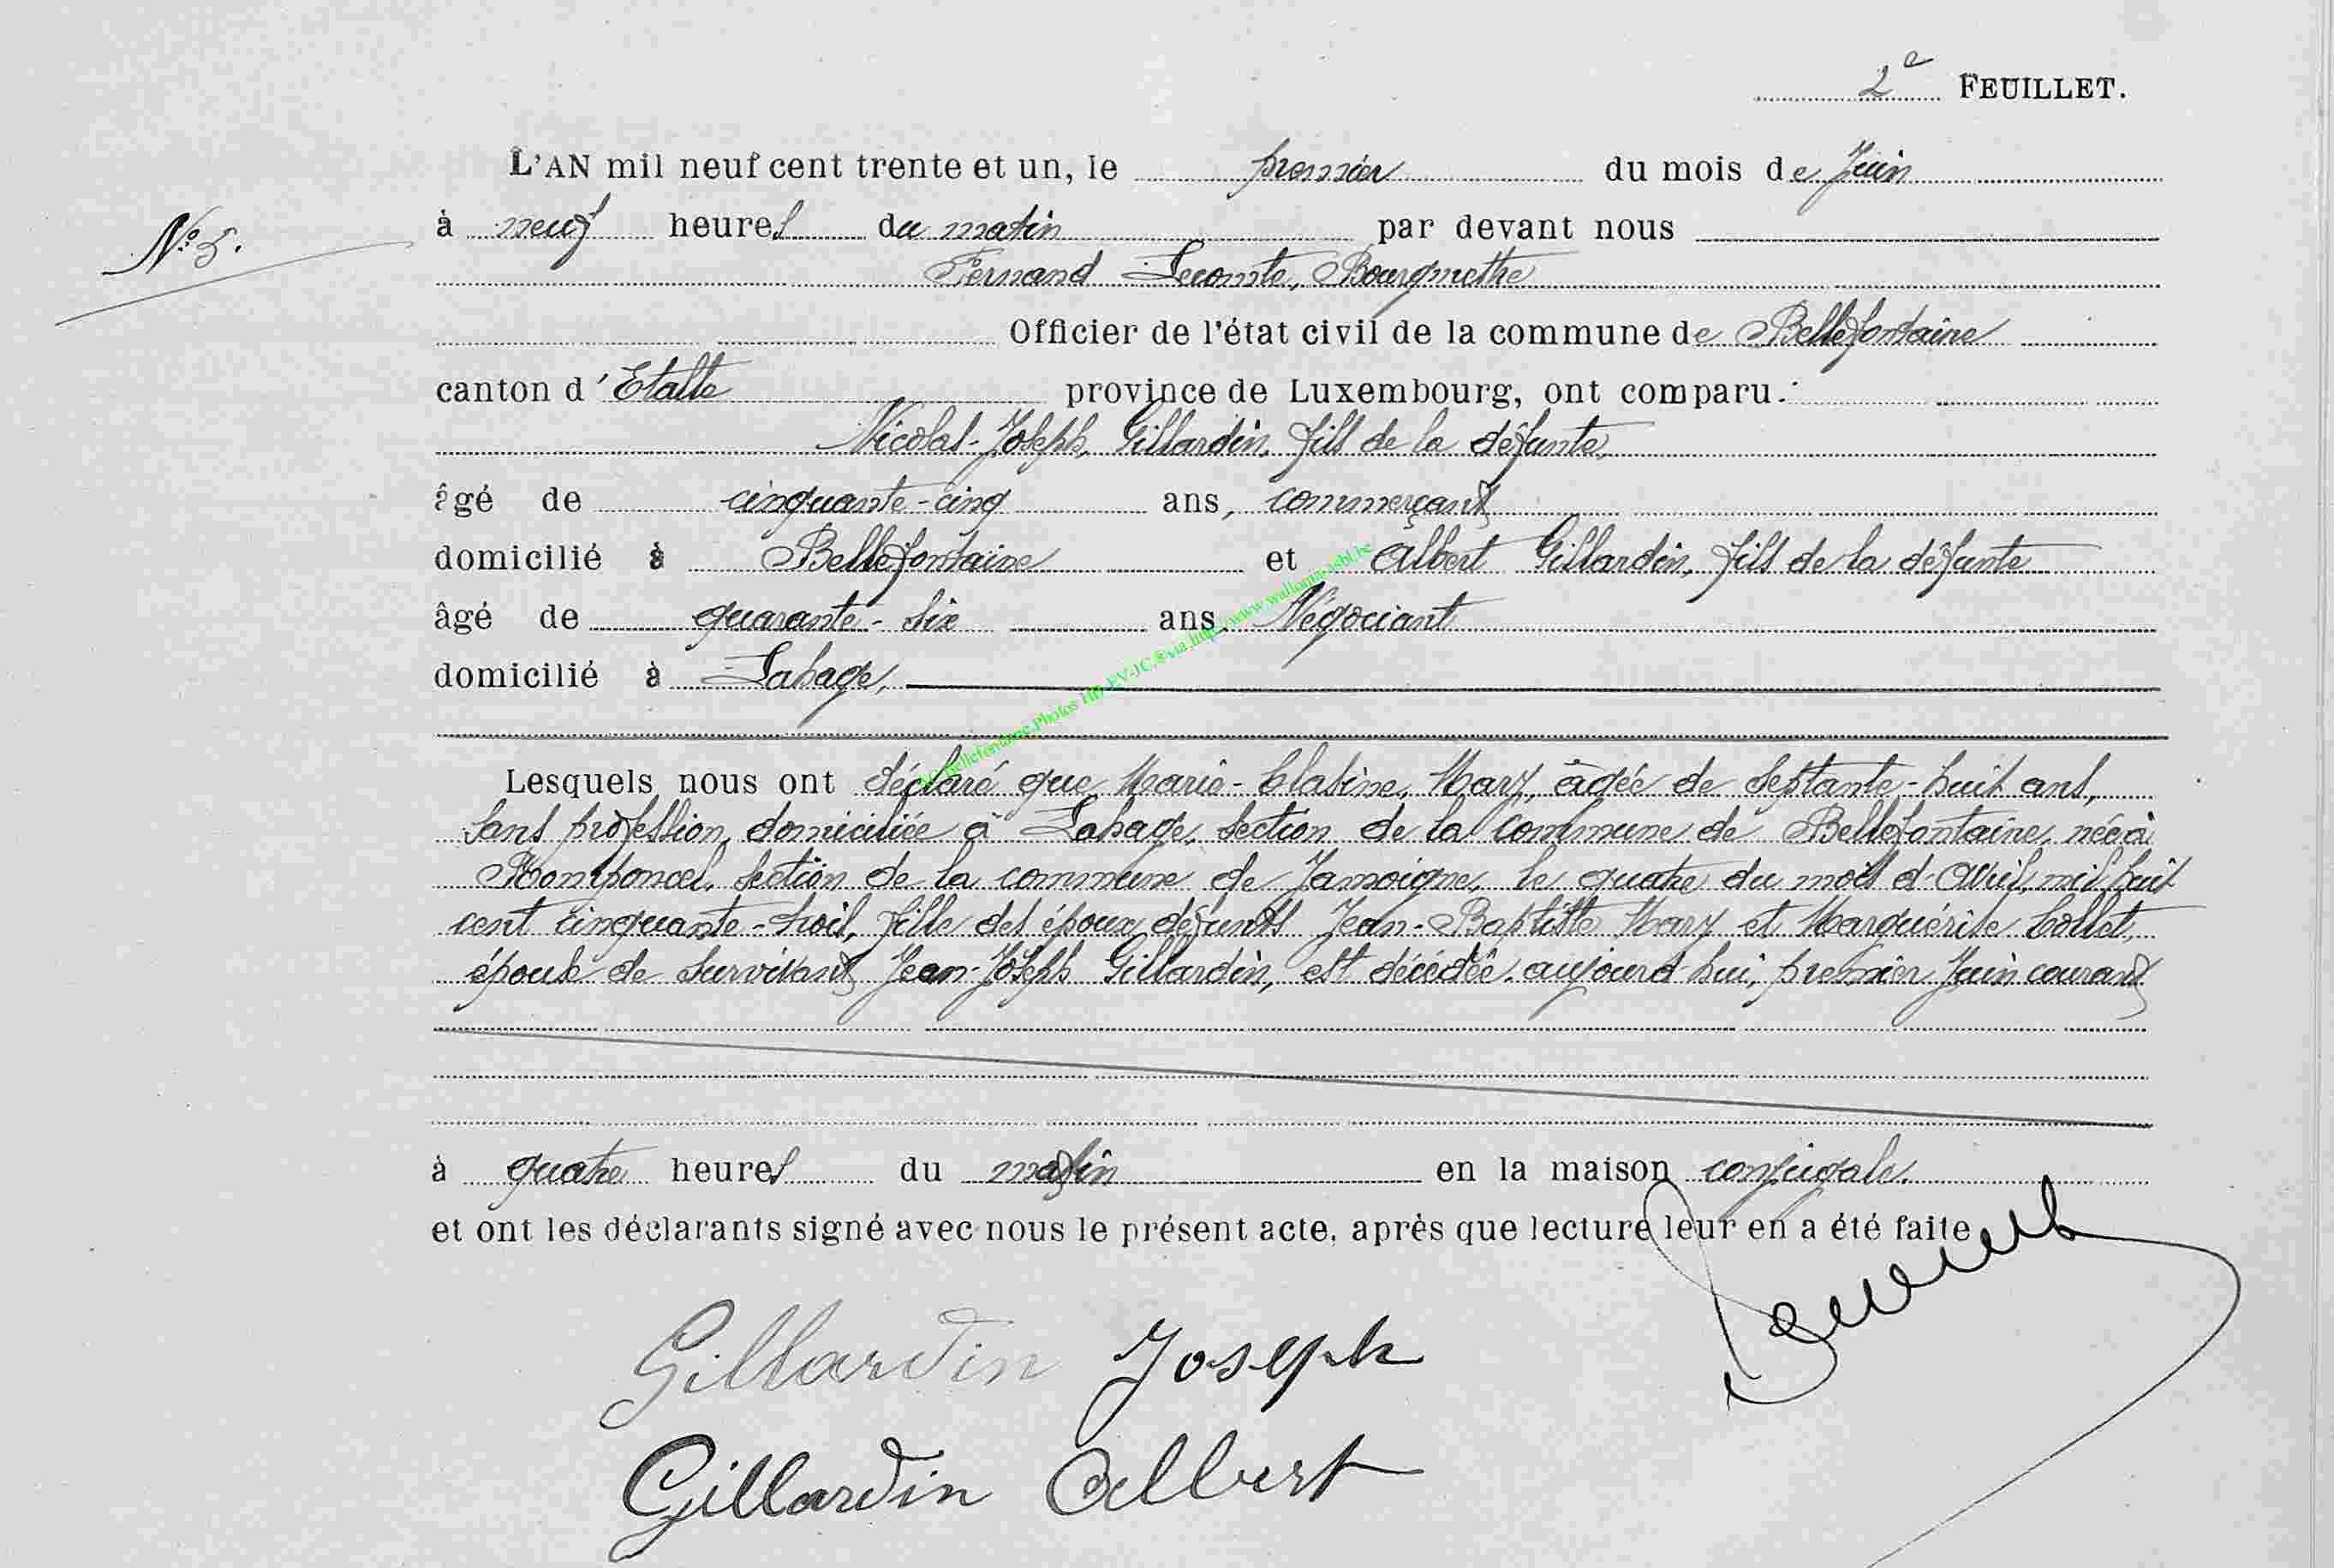 2e FEUILLET.
L'AN mil neuf cent trente et un, le premier du mois de Juin
N° 5.
à neuf heures du matin par devant nous
Fernand Lecomte, Bourgmestre
Officier de l'état civil de la commune de Bellefontaine
canton d'Etalle province de Luxembourg, ont comparu :
Nicolas-Joseph, Gillardin, fils de la défunte,
âgé de cinquante-cinq ans, commerçant
domicilié à Bellefontaine et Albert Gillardin, fils de la défunte
âgé de quarante-six ans, Négociant
domicilié à Lahage,
Lesquels nous ont déclaré que Marie- Mary, âgée de septante-huit ans,
sans profession, domiciliée à Lahage, section de la commune de Bellefontaine, née à
Romponcel, section de la commune de Jamoigne, le quatre du mois d'Avril, mil huit
cent cinquante-trois, fille des époux défunts Jean-Baptiste Mary et Marguérite Collet,
épouse de survivant Jean-Joseph Gillardin, est décédée aujourd'hui, premier Juin courant
à quatre heures du matin en la maison conjugale.
et ont les déclarants signé avec nous le présent acte, après que lecture leur en a été faite
Gillardin Joseph
Gillardin Albert